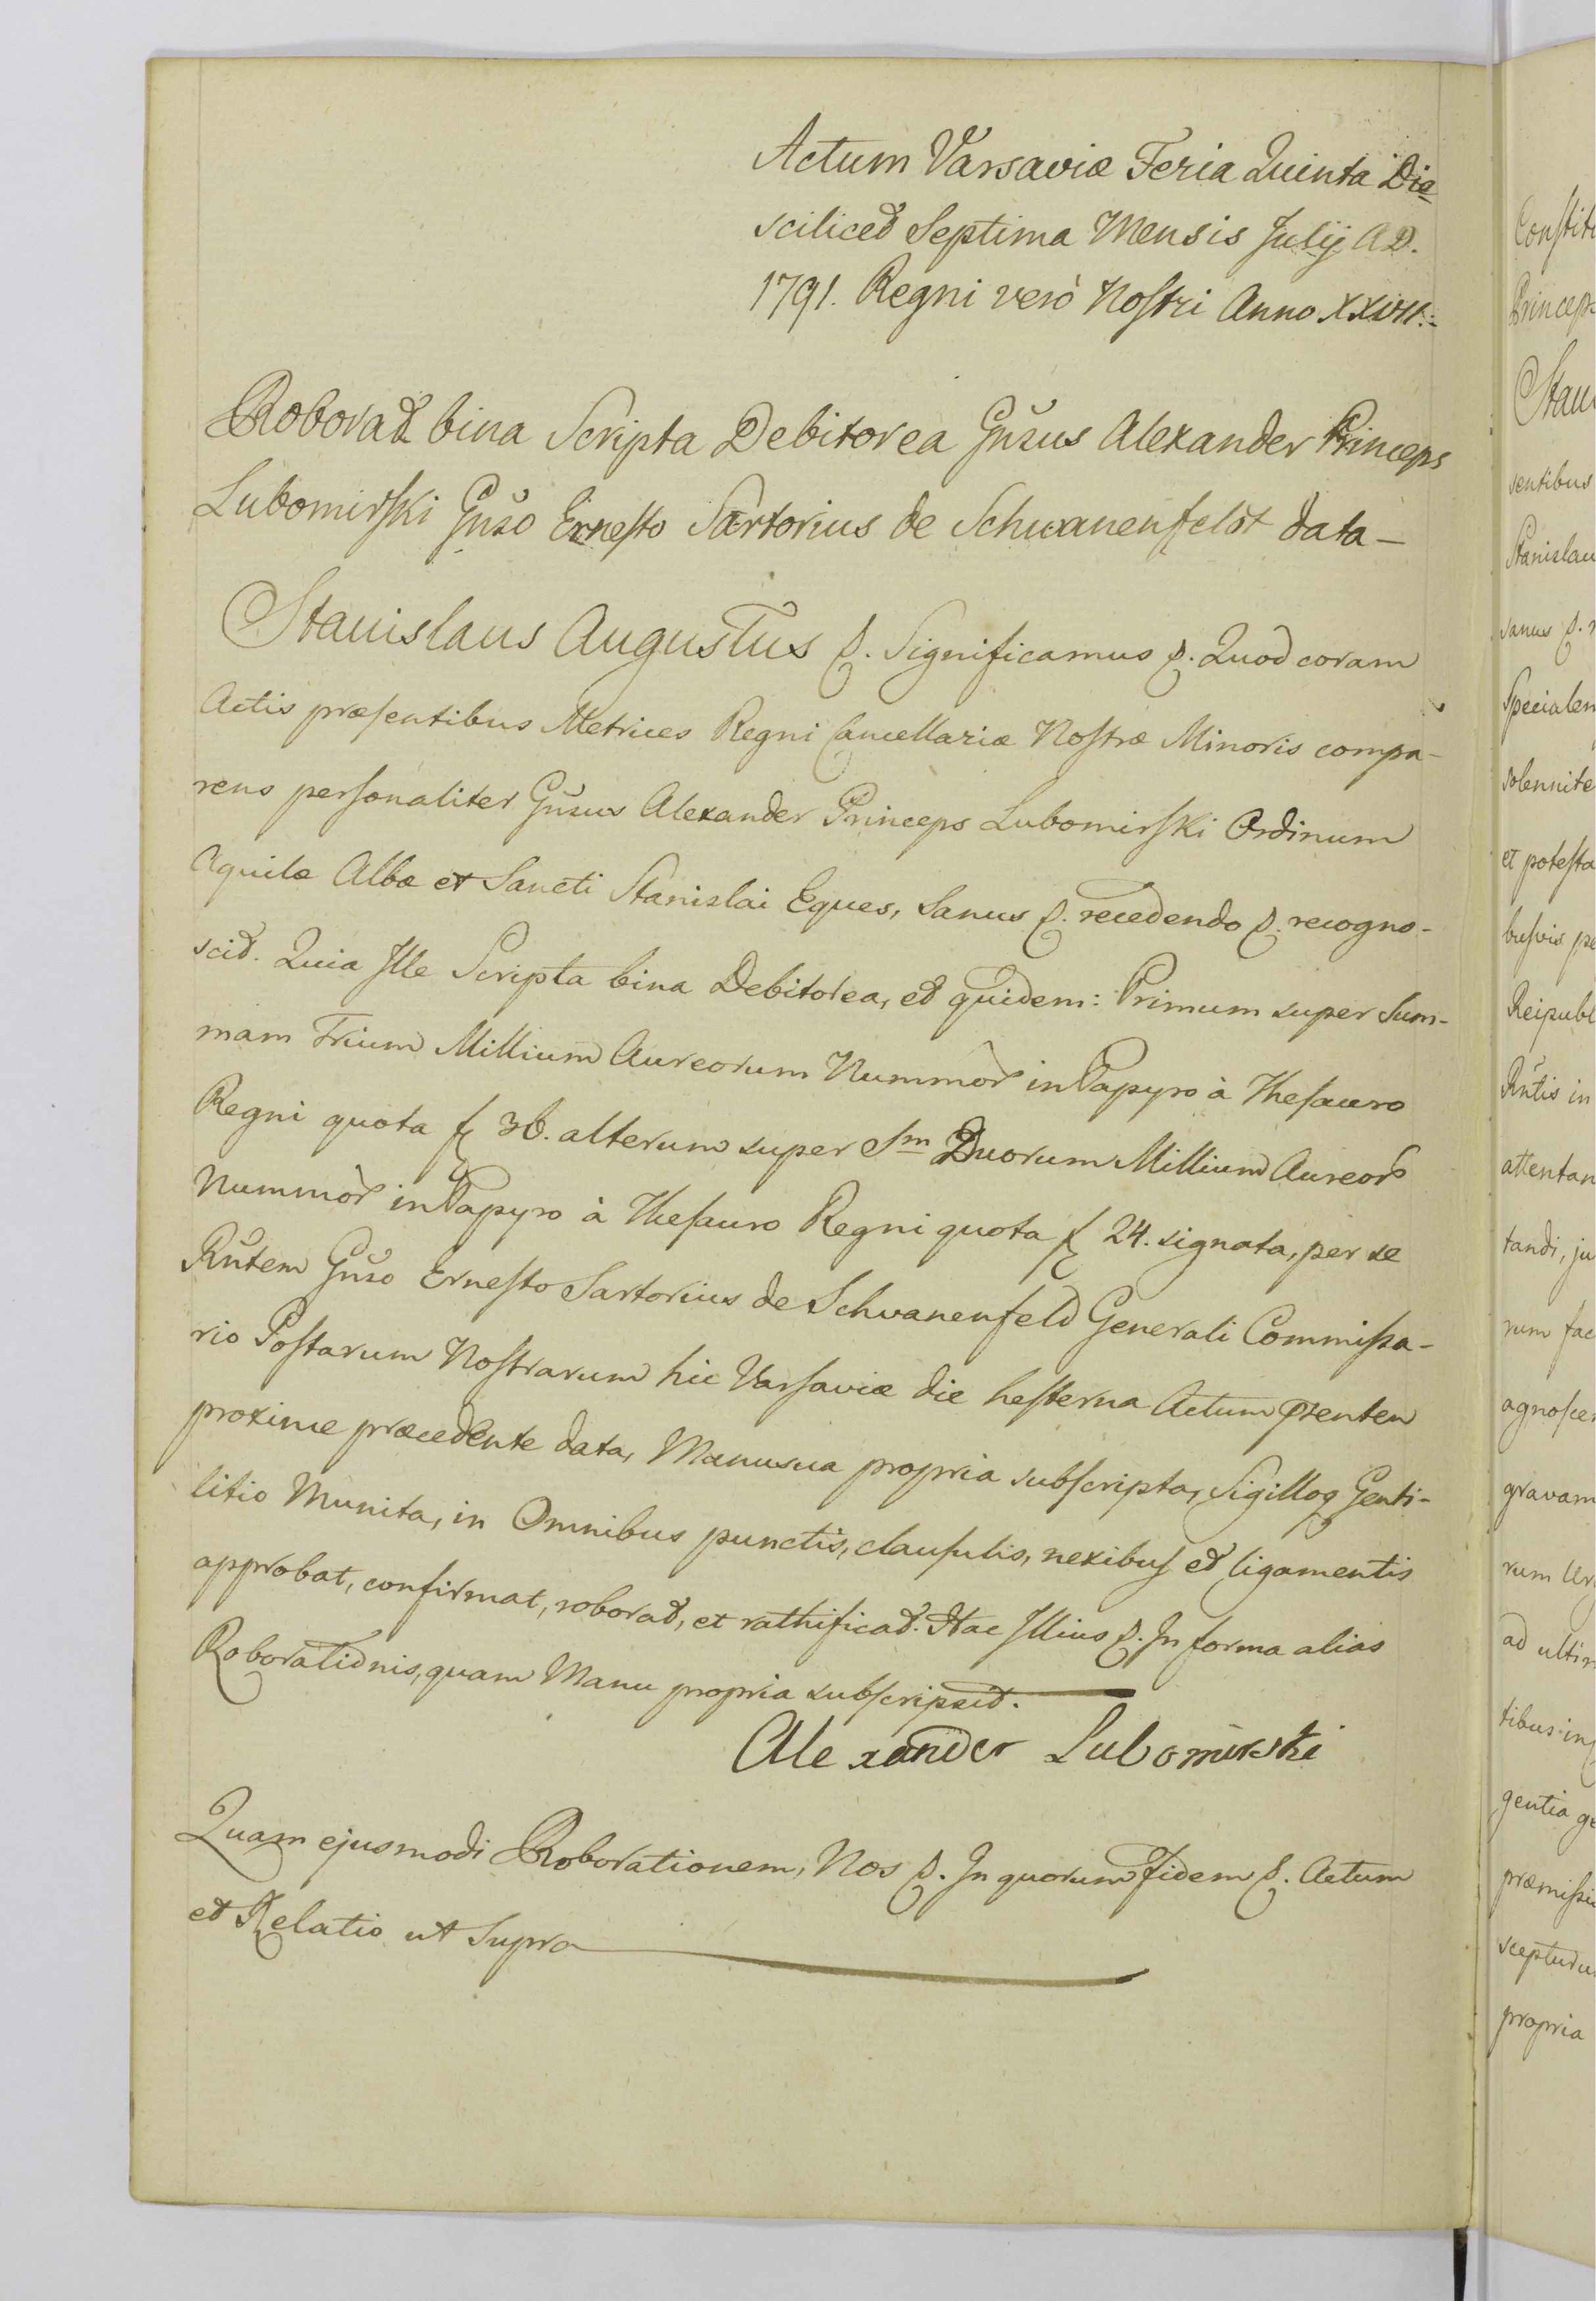 Actum Varsaviæ Feria Quinta Die
scilicet Septima Mensis Julij A.D.
1791. Regni verò Nostri Anno XXVII.
Roborat bina Scripta Debitorea Gnsus Alexander Princeps
Lubomirski Gnso Ernesto Sartorius de Schwanenfeldt data —
Stanislaus Augustus p. Significamus p. Quod coram
Actis præsentibus Metrices Regni Cancellariæ Nostræ Minoris compa-
rens personaliter Gnsus Alexander Princeps Lubomirski Ordinum
Aquilæ Albæ et Sancti Stanislai Eques, Sanus p. recedendo p. recogno-
scit. Quia Ille Scripta bina Debitorea, et quidem: Primum super Sum-
mam Trium Millium Aureorum Nummor in Papyro à Thesauro
Regni quota f 36. alterum super Sm Duorum Millium Aureor
Nummor in Papyro à Thesauro Regni quota f 24. signata, per se
Rntem Gnso Ernesto Sartorius de Schwanenfeld Generali Commissa-
rio Postarum Nostrarum hic Varsaviæ die hesterna Actum præntem
proxime præcedente data, Manu sua propria subscripta, Sigilloq Genti-
litio Munita, in Omnibus punctis, clausulis, nexibus et ligamentis
approbat, confirmat, roborat, et rathificat. Hac Illius p. In forma alias
Roborationis, quam Manu propria subscripsit.
Alexander Lubomirski
Quam ejusmodi Roborationem, Nos p. In quorum fidem p. Actum
et Relatio ut Supra
Princeps
sentibus
Stanislau
sanus p.
Specialem
solennite
et potesta
busvis
Reipubl
Rntis in
attentan
tandi, ju
rum fac
agnoscen
gravam
rum
ad ultim
tibus in
gentia ge
præmissi
propria